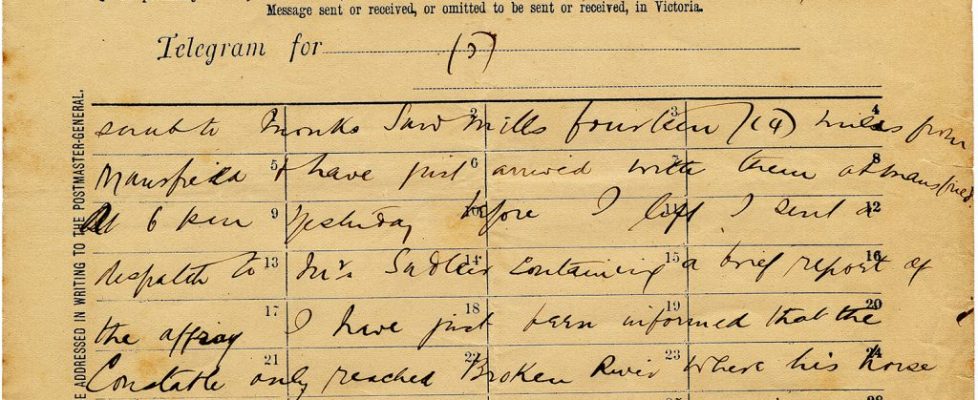 Message sent or received, or omitted to be sent or received, in Victoria.
Telegram for (5)
scrub to Monks Saw Mills fourteen (14) miles from
Mansfield & have just arrived with them at Mansfield
At 6 pm Yesterday before I left I sent a
despatch to Insr Sadleir containing a brief report of
the affray I have just been informed that the
Constable only reached Broken River where his horse
1 2 3 4
5 6 7 8
9 10 11 12
13 14 15 16
17 18 19 20
21 22 23 24
E ADDRESSED IN WRITING TO THE POSTMASTER-GENERAL.